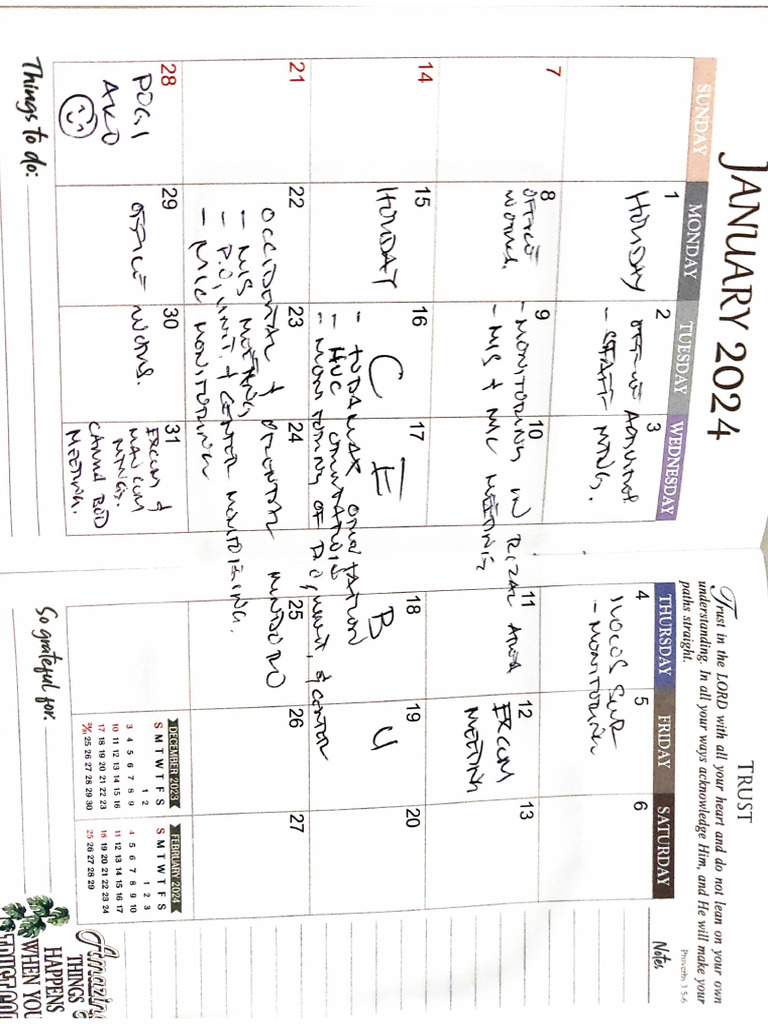 JANUARY 2024
TRUST
Trust in the LORD with all your heart and do not lean on your own
understanding. In all your ways acknowledge Him, and He will make your
paths straight.
Proverbs 3:5-6
SUNDAY MONDAY TUESDAY WEDNESDAY THURSDAY FRIDAY SATURDAY
Notes
1 2 3 4 5 6
HOLIDAY
OFFICE
- STAFF MTNG.
ILOCOS SUR
- MONITORING
7 8 9 10 11 12 13
OFFICE
WORKS.
- MONITORING IN RIZAL AREA
- MIS & MIC MEETING
EXCOM
MEETING
14 15 16 17 18 19 20
HOLIDAY
C E B U
- ORIENTATION
- MONITORING OF & CENTER
21 22 23 24 25 26 27
OCCIDENTAL & ORIENTAL MINDORO
- MIS MEETING
- P.O, UNIT & CENTER MONITORING.
- MIC MONITORING
28 29 30 31
POGI
AKO
OFFICE WORKS.
EXCOM &
MANCOM
MTNGS.
BOD
MEETING.
DECEMBER 2023
S M T W T F S
1 2
3 4 5 6 7 8 9
10 11 12 13 14 15 16
17 18 19 20 21 22 23
24/31 25 26 27 28 29 30
FEBRUARY 2024
S M T W T F S
1 2 3
4 5 6 7 8 9 10
11 12 13 14 15 16 17
18 19 20 21 22 23 24
25 26 27 28 29
Things to do:
So grateful for:
Amazing
THINGS
HAPPENS
WHEN YOU
TRUST GOD